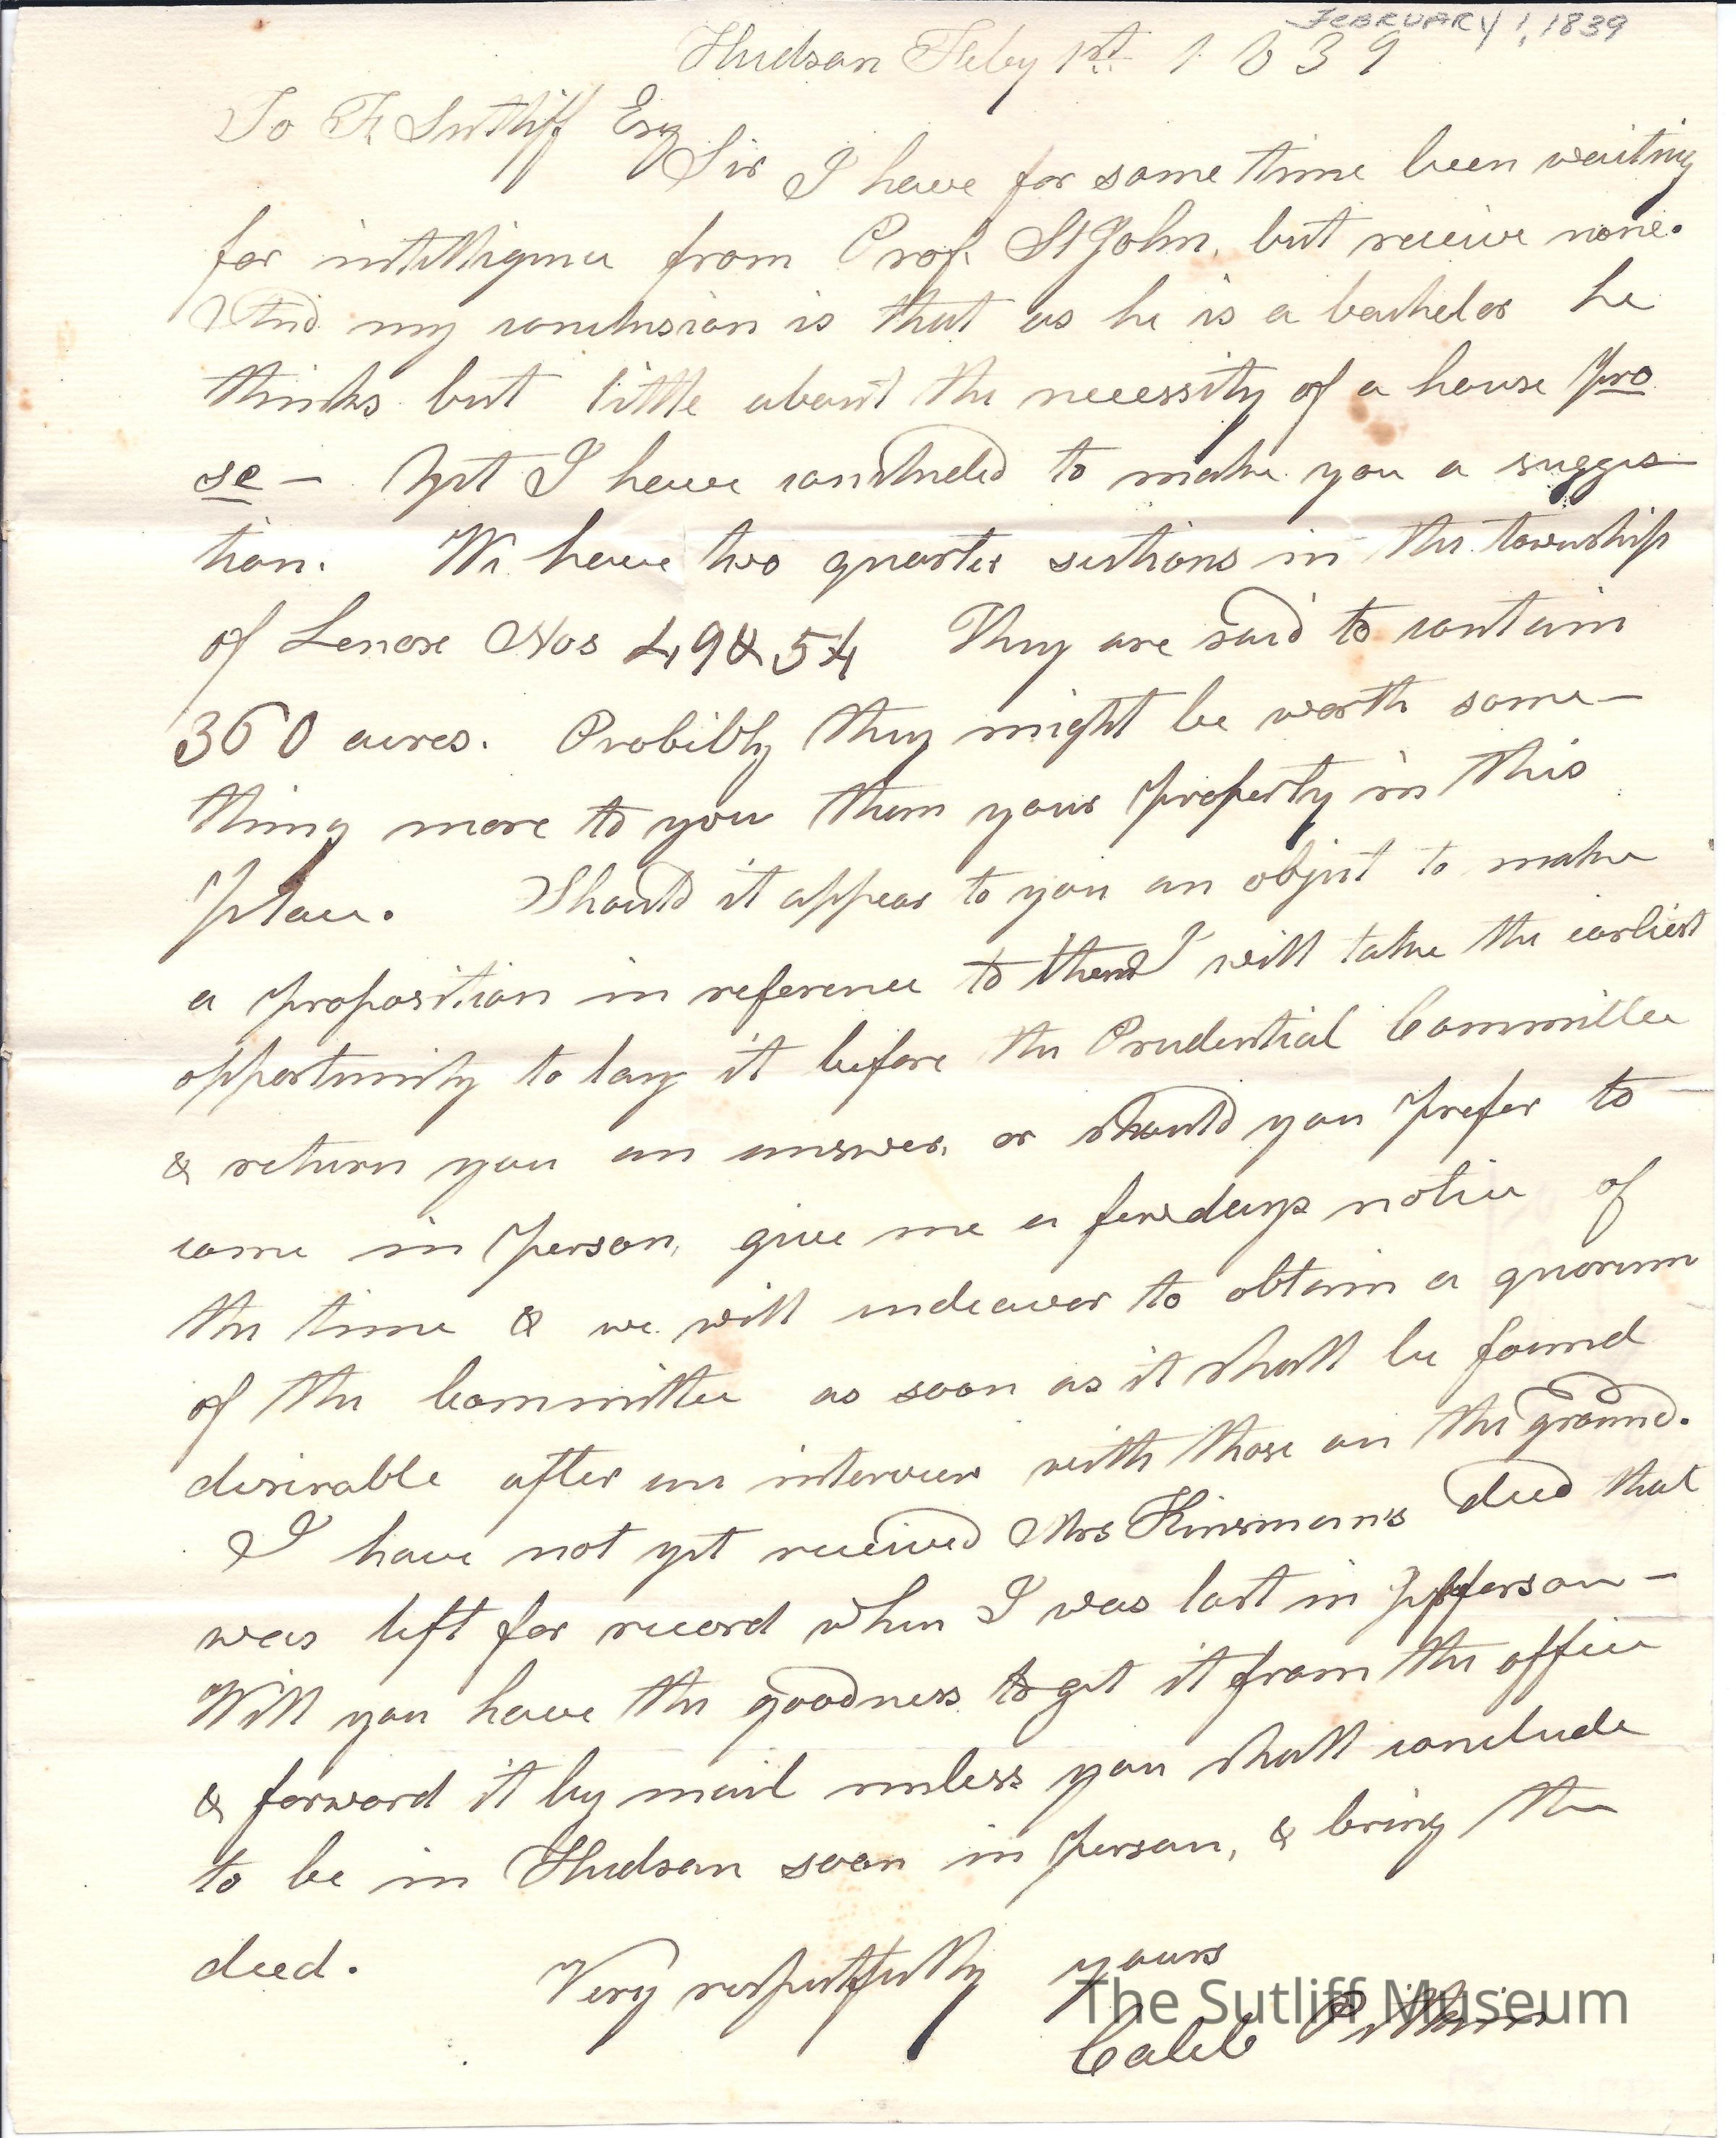 FEBRUARY 1, 1839
Hudson Feby 1st 1839
To F. Sutliff Esq
Sir I have for some time been waiting
for intelligence from Prof. St John, but receive none.
And my conclusion is that as he is a bachelor he
thinks but little about the necessity of a house pro
se — Yet I have concluded to make you a sugges
tion. We have two quarter sections in the township
of Lenox Nos 49 & 54 They are said to contain
360 acres. Probibly they might be worth some-
thing more to you than your property in this
place. Should it appear to you an object to make
a proposition in reference to them I will take the earliest
opportunity to lay it before the Prudential Committee
& return you an answer, or should you prefer to
come in person, give me a few days notice of
the time & we will endeavor to obtain a quorum
of the Committee as soon as it shall be found
desirable after an interview with those on the ground.
I have not yet received Mrs Kinsman's deed that
was left for record when I was last in Jefferson —
Will you have the goodness to get it from the office
& forward it by mail unless you shall conclude
to be in Hudson soon in person, & bring the
deed. Very respectfully yours
Caleb Pitkin
The Sutliff Museum